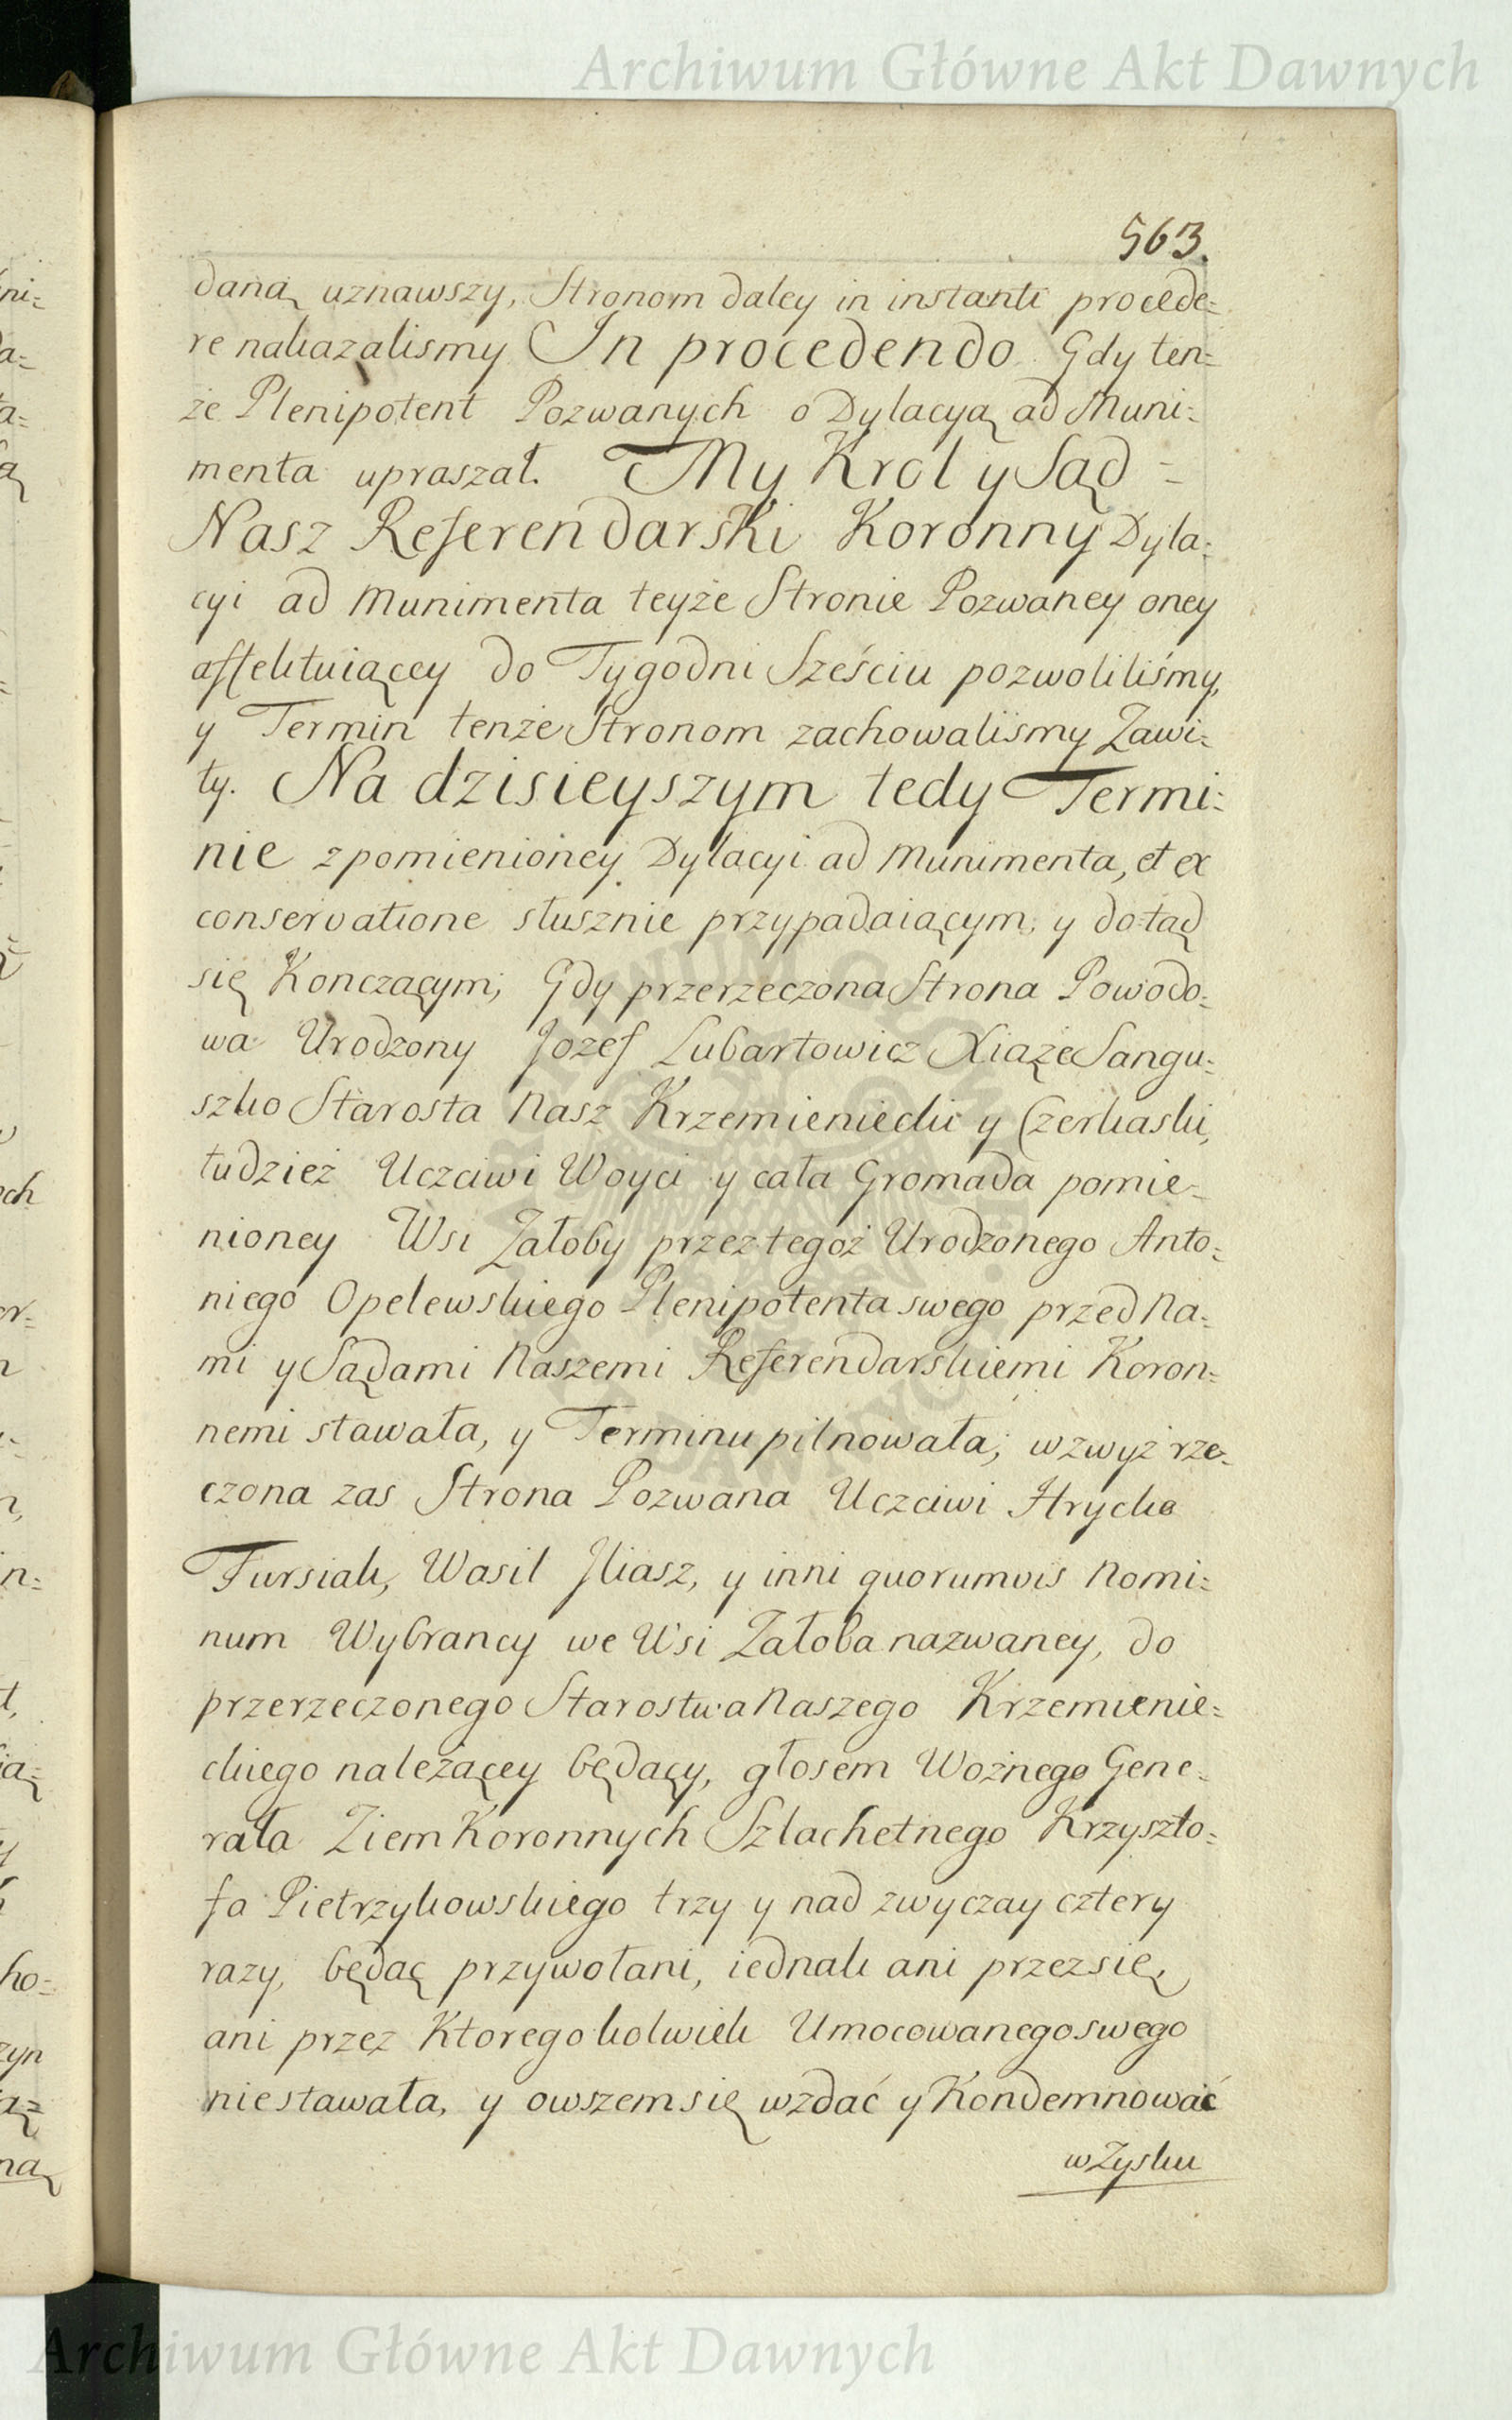 Archiwum Główne Akt Dawnych
563.
daną uznawszy, Stronom daley in instanti procede=
re nakazalismy In procedendo Gdy ten=
że Plenipotent Pozwanych o Dylacyą ad Muni=
menta upraszał. My Krol y Sąd =
Nasz Referendarski Koronny Dyla=
cyi ad Munimenta teyże Stronie Pozwaney oney
affektuiącey do Tygodni Sześciu pozwoliliśmy,
y Termin tenże Stronom zachowalismy Zawi=
ty. Na dzisieyszym tedy Termi=
nie zpomienioney Dylacyi ad Munimenta, et ex
conservatione słusznie przypadaiącym, y dotąd
się Konczącym; Gdy przerzeczona Strona Powodo=
wa Urodzony Jozef Lubartowicz Xiąże Sangu=
szko Starosta Nasz Krzemieniecki y Czerkaski,
tudzież Uczciwi Woyci y cała Gromada pomie=
nioney Wsi Załoby przez tegoż Urodzonego Anto=
niego Opelewskiego Plenipotenta swego przed Na=
mi y Sądami Naszemi Referendarskiemi Koron=
nemi stawała, y Terminu pilnowała; wzwyż rze=
czona zas Strona Pozwana Uczciwi Hrycko
Fursiak, Wasil Jliasz, y inni quorumvis Nomi=
num Wybrancy we Wsi Załoba nazwaney, do
przerzeczonego Starostwa Naszego Krzemienie=
ckiego należącey będący, głosem Woznego Gene=
rała Ziem Koronnych Szlachetnego Krzyszto=
fa Pietrzykowskiego trzy y nad zwyczay cztery
razy, będąc przywołani, iednak ani przez się,
ani przez Ktoregokolwiek Umocowanego swego
niestawała, y owszem się wzdać y Kondemnować
w Zysku
Archiwum Główne Akt Dawnych